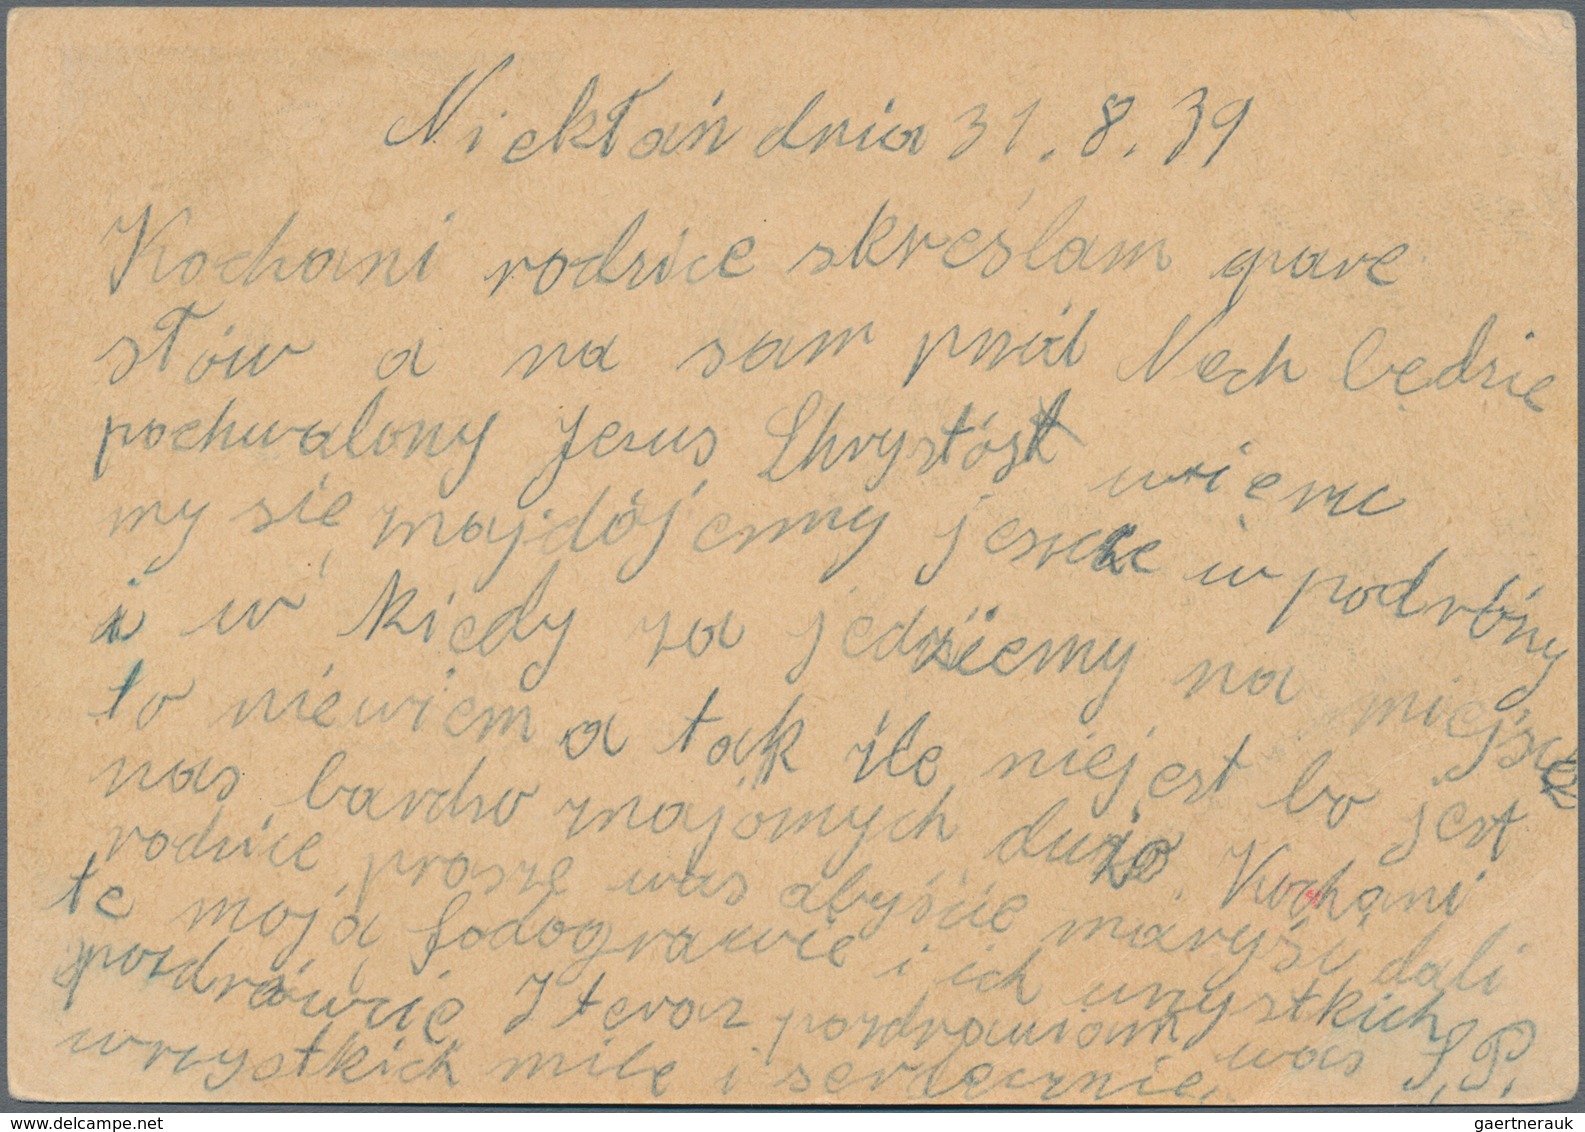 Niekłań dnia 31.8.39
Kochani rodzice skreślam pare
słów a na sam pród Nech będzie
pochwalony Jezus Chrystós
my się majdójemy jescze w podróży
i w kiedy za jedziemy na miejsce
to niewiem a tak źle niejest bo jest
nas bardzo znajómych dużo. Kochani
rodzice prosze was abyście maryśi dali
te moją fodograwie i ich wszystkich
pozdrówcie I teraz pozdrawiam was S.P.
wszystkich mile i serdecznie.
gaertnerauk @ delcampe.net